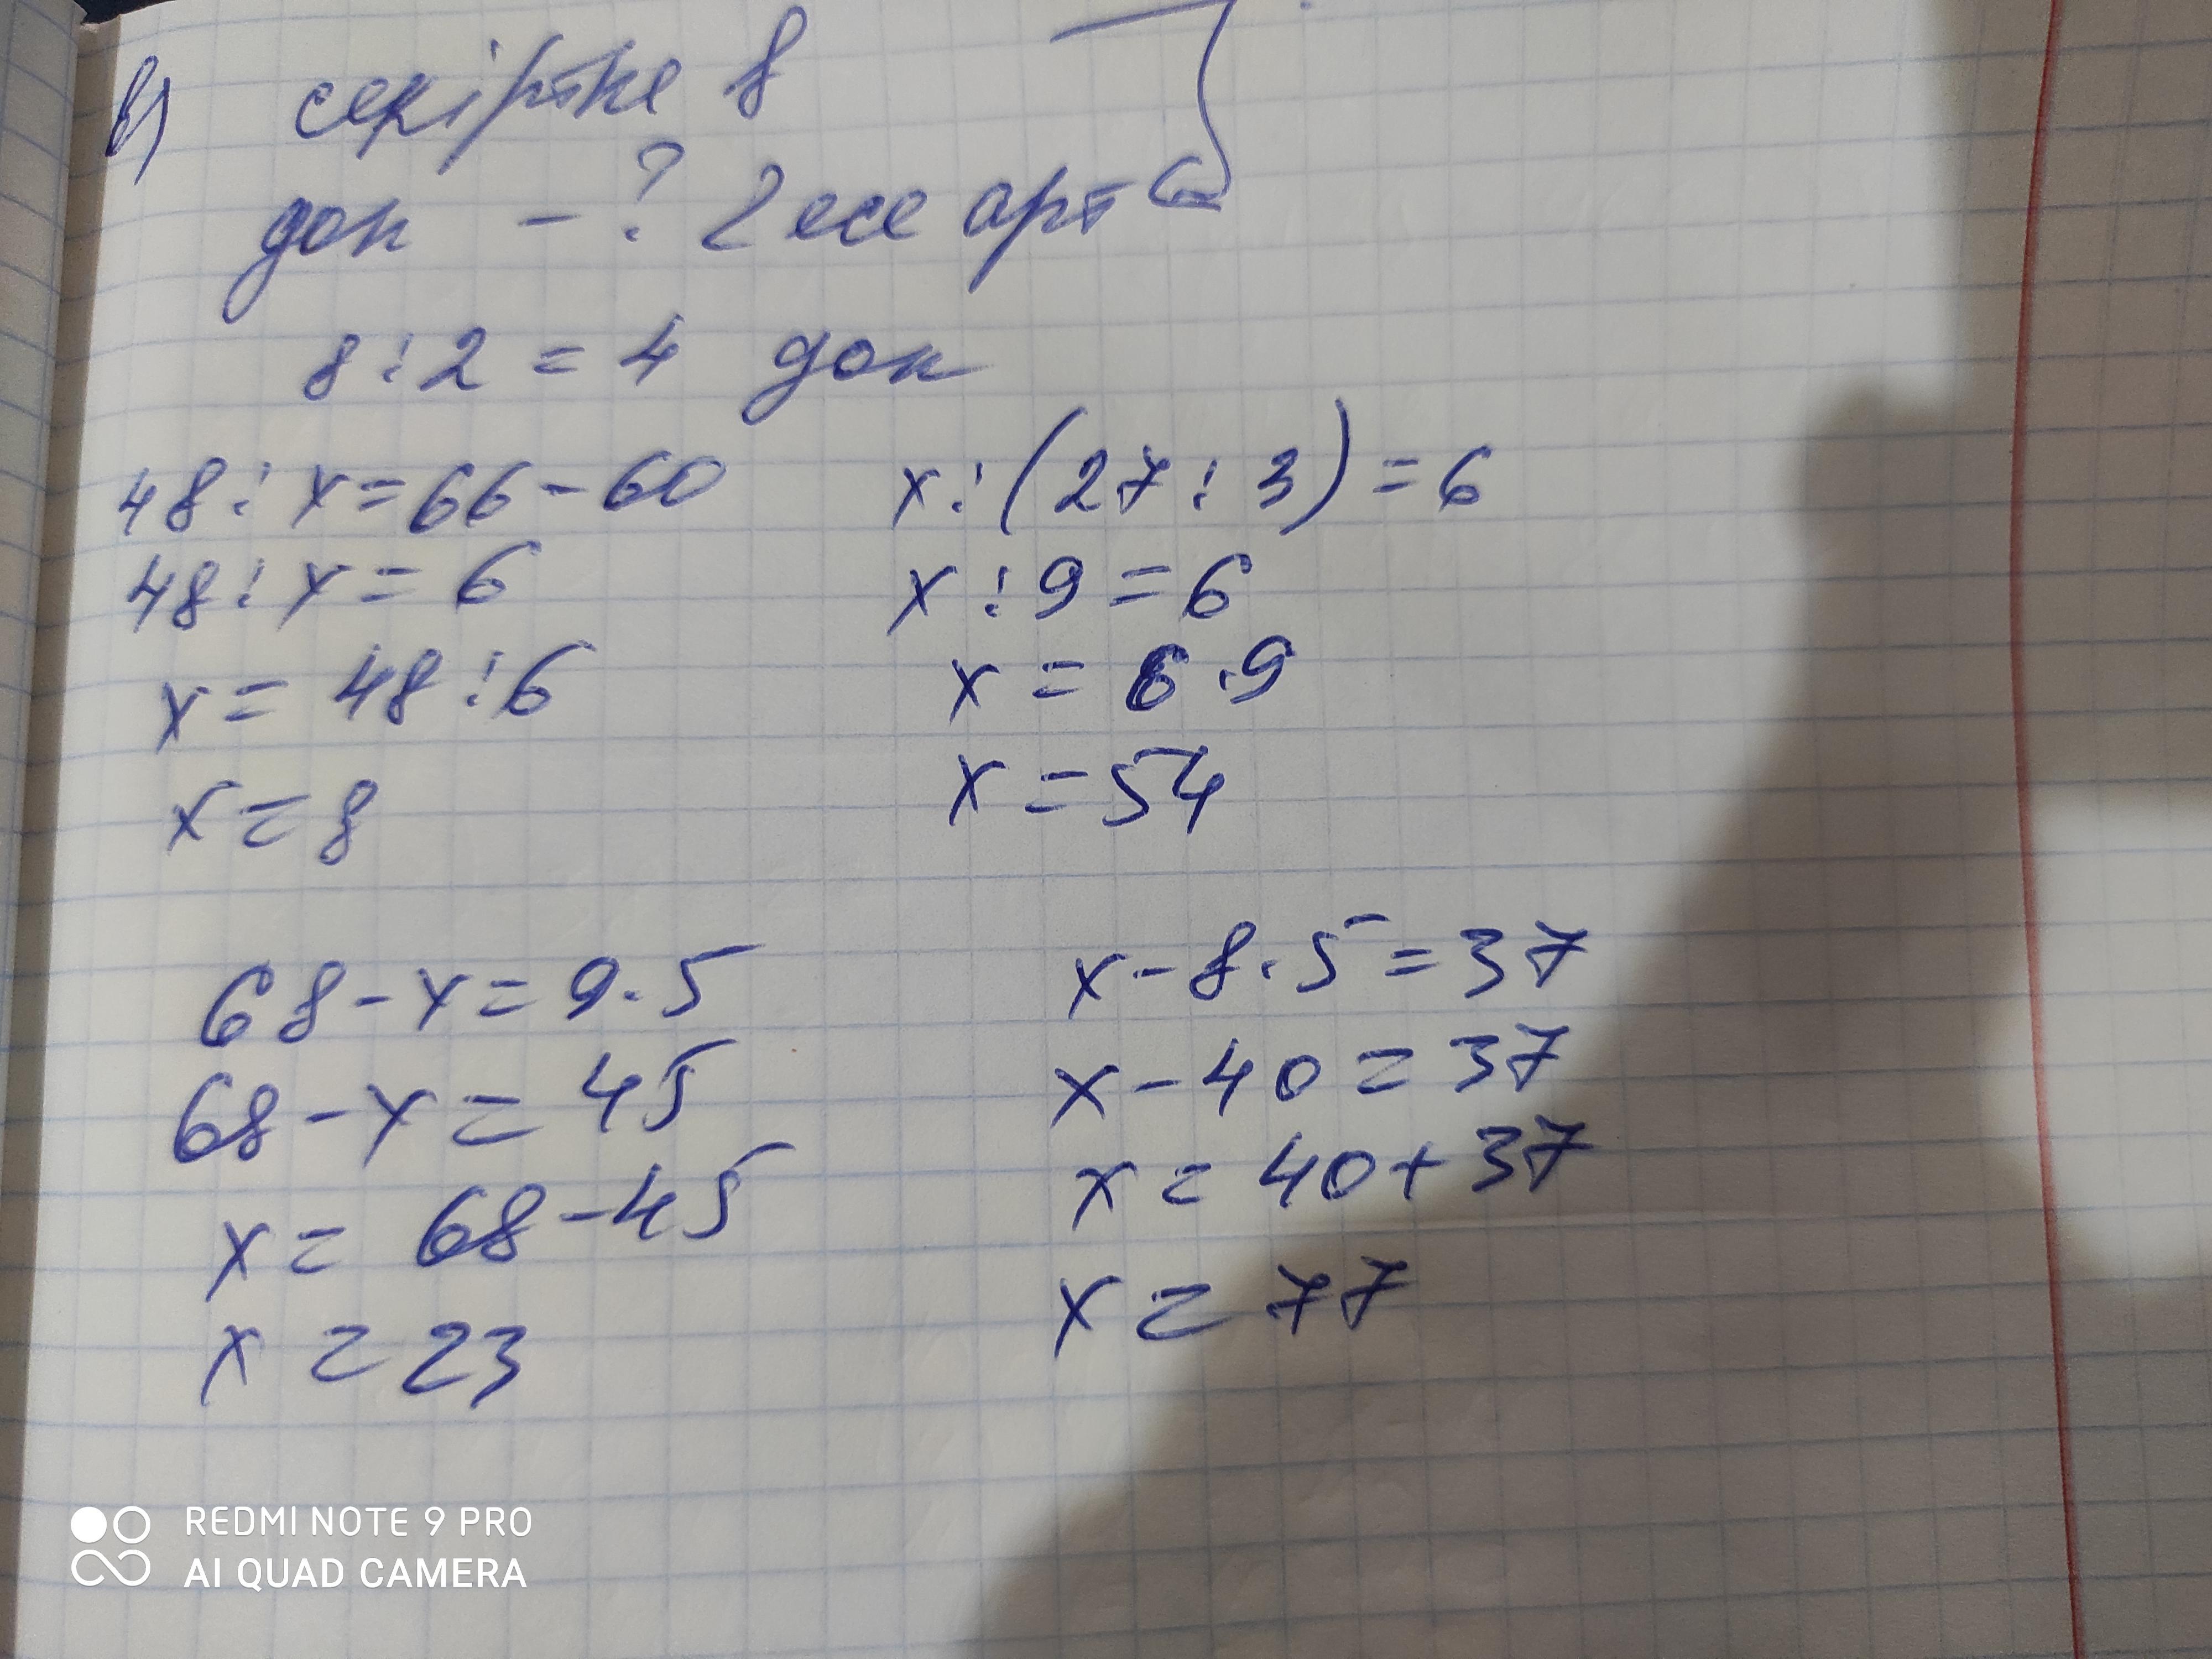 в) секіртке 8
доп - ? 2 есе арт
8 : 2 = 4 доп
48 : x = 66 - 60
48 : x = 6
x = 48 : 6
x = 8
x : (27 : 3) = 6
x : 9 = 6
x = 6 · 9
x = 54
68 - x = 9 · 5
68 - x = 45
x = 68 - 45
x = 23
x - 8 · 5 = 37
x - 40 = 37
x = 40 + 37
x = 77
REDMI NOTE 9 PRO
AI QUAD CAMERA